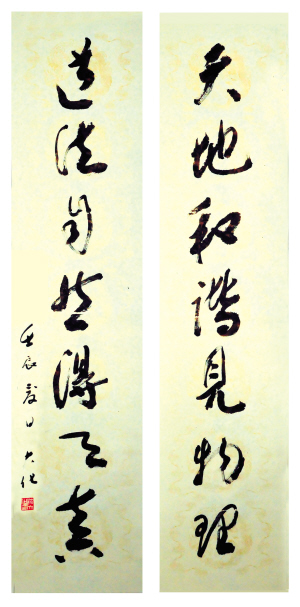 天地和谐见物理
道法自然得天真
壬辰夏日 大化